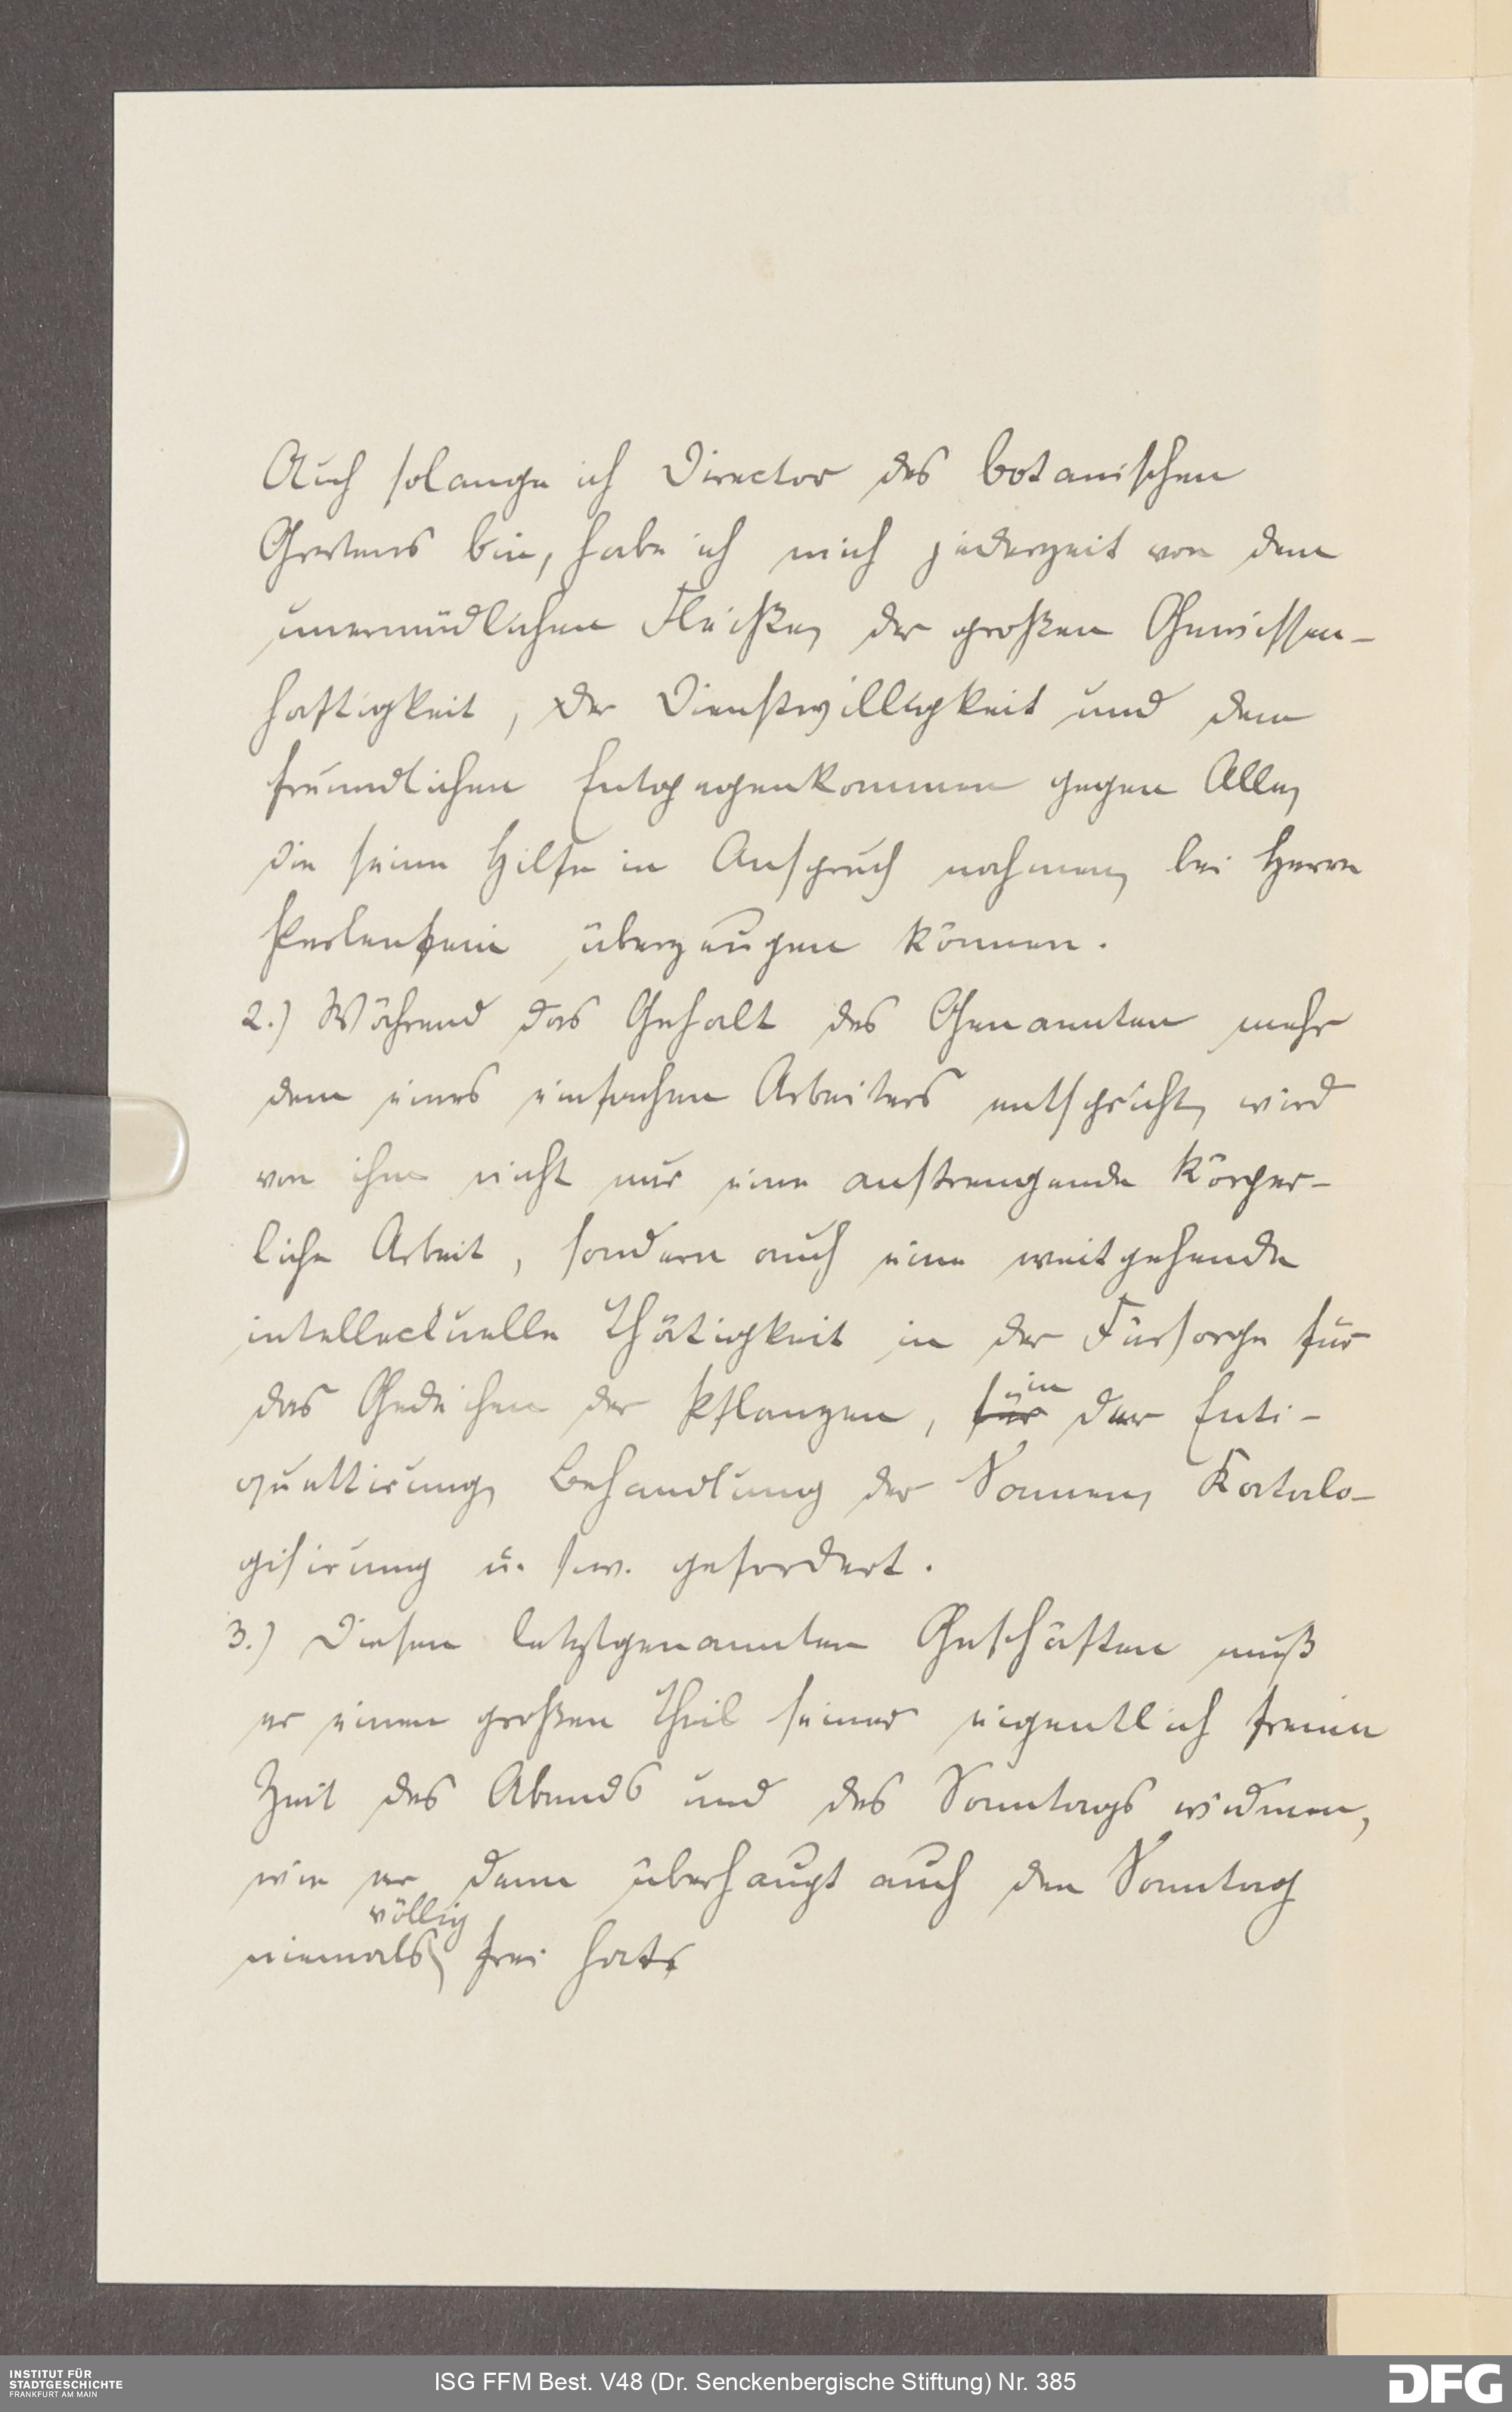 Auch solange ich Director des botanischen
Gartens bin, habe ich mich jederzeit von dem
unermüdlichen Fleiße, der großen Gewissen-
haftigkeit, der Dienstwilligkeit und dem
freundlichen Entgegenkommen gegen Alle,
die seine Hilfe in Anspruch nahmen, bei Herrn
Perlenfein überzeugen können.
2.) Während das Gehalt des Genannten mehr
dem eines einfachen Arbeiters entspricht, wird
von ihm nicht nur eine anstrengende körper-
liche Arbeit, sondern auch eine weitgehende
intellectuelle Thätigkeit in der Fürsorge für
das Gedeihen der Pflanzen, für in der Enti-
quettirung, Behandlung der Samen, Katalo-
gisirung u. s. w. gefordert.
3.) Diesen letztgenannten Geschäften muß
er einen großen Theil seiner eigentlich freien
Zeit des Abends und des Sonntags widmen,
wie er denn überhaupt auch den Sonntag
völlig
niemals frei hat.
INSTITUT FÜR
STADTGESCHICHTE
FRANKFURT AM MAIN
ISG FFM Best. V48 (Dr. Senckenbergische Stiftung) Nr. 385
DFG